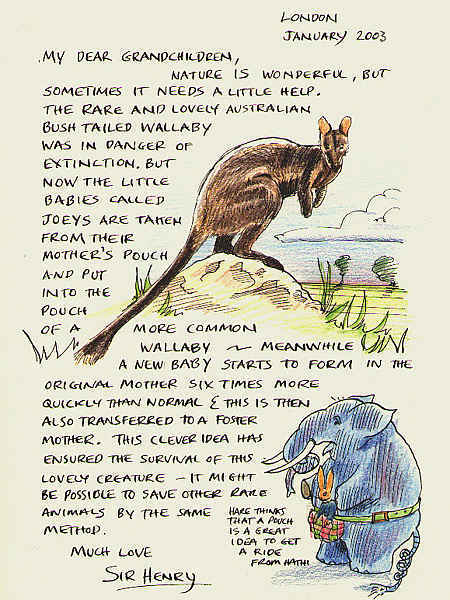 LONDON
JANUARY 2003
MY DEAR GRANDCHILDREN,
NATURE IS WONDERFUL, BUT
SOMETIMES IT NEEDS A LITTLE HELP.
THE RARE AND LOVELY AUSTRALIAN
BUSH TAILED WALLABY
WAS IN DANGER OF
EXTINCTION. BUT
NOW THE LITTLE
BABIES CALLED
JOEYS ARE TAKEN
FROM THEIR
MOTHER'S POUCH
AND PUT
INTO THE
POUCH
OF A MORE COMMON
WALLABY ~ MEANWHILE
A NEW BABY STARTS TO FORM IN THE
ORIGINAL MOTHER SIX TIMES MORE
QUICKLY THAN NORMAL & THIS IS THEN
ALSO TRANSFERRED TO A FOSTER
MOTHER. THIS CLEVER IDEA HAS
ENSURED THE SURVIVAL OF THIS
LOVELY CREATURE - IT MIGHT
BE POSSIBLE TO SAVE OTHER RARE
ANIMALS BY THE SAME
METHOD.
MUCH LOVE
SIR HENRY
HARE THINKS
THAT A POUCH
IS A GREAT
IDEA TO GET
A RIDE
FROM HATHI